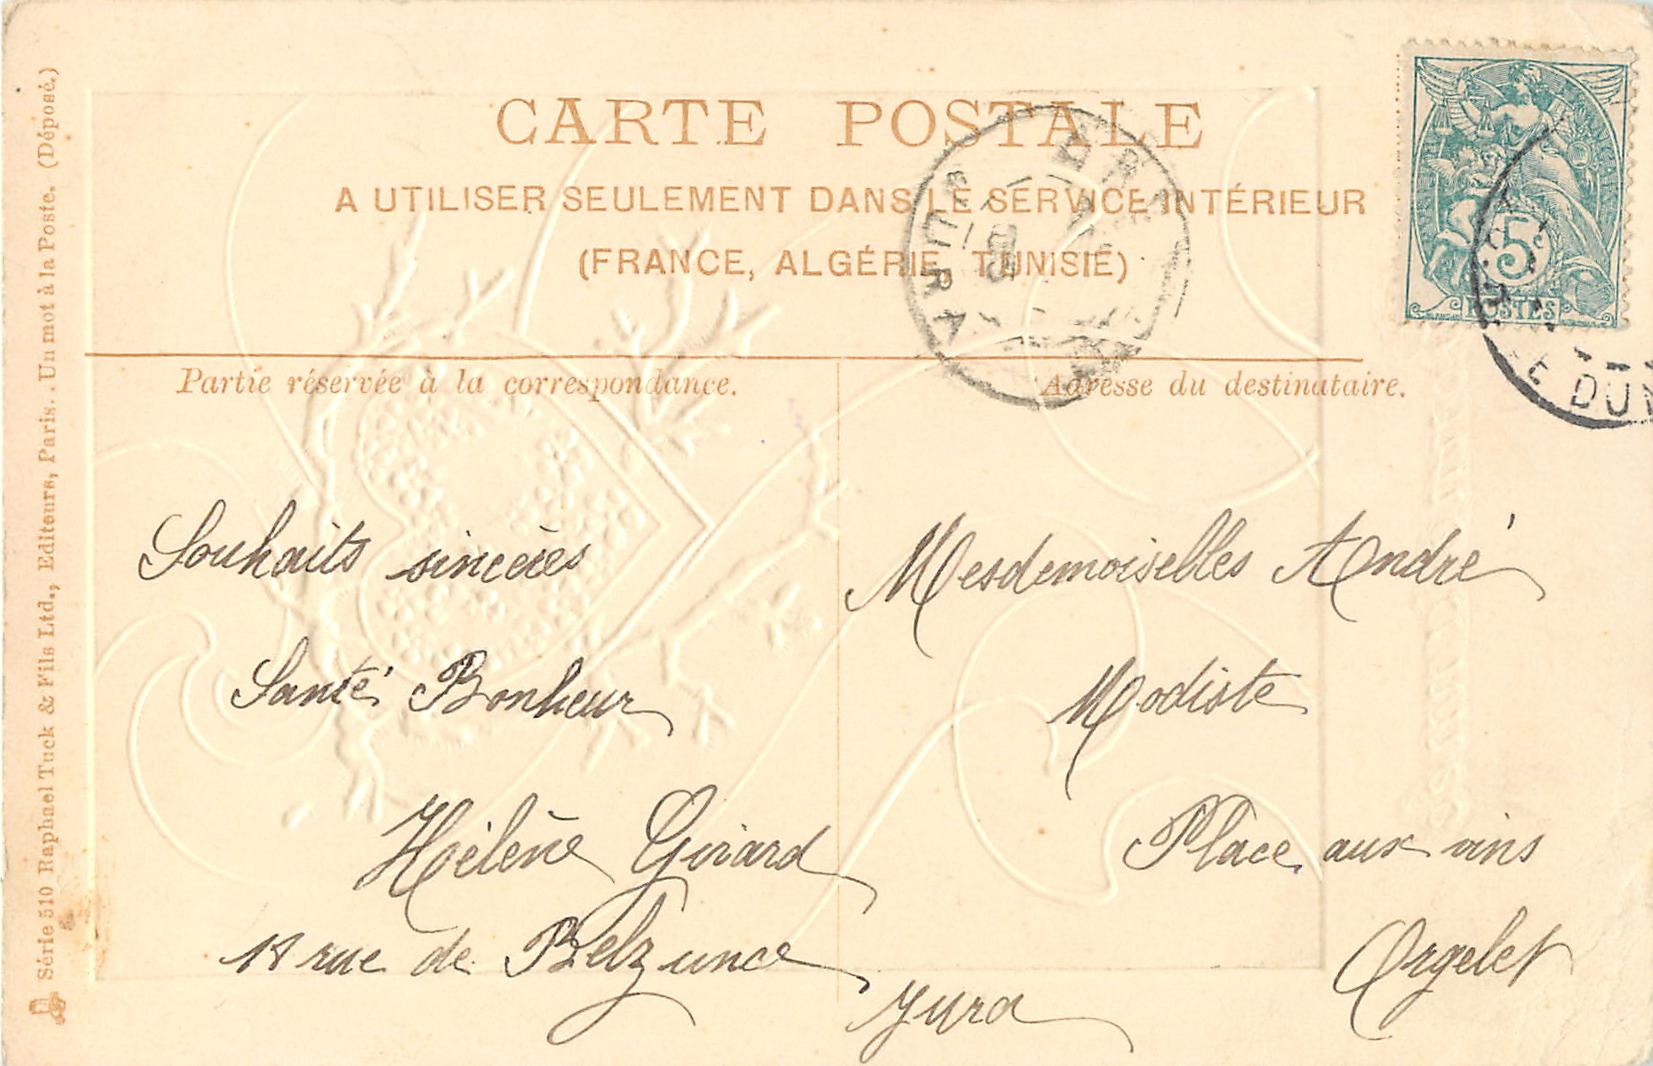 CARTE POSTALE
A UTILISER SEULEMENT DANS LE SERVICE INTÉRIEUR
(FRANCE, ALGÉRIE, TUNISIE)
Partie réservée à la correspondance.
Adresse du destinataire.
Souhaits sincères
Santé Bonheur
Hélène Girard
18 rue de Belzunce
Mesdemoiselles André
Modiste
Place aux vins
Orgelet
Jura
Série 510 Raphael Tuck & Fils Ltd., Editeurs, Paris. . Un mot à la Poste. (Déposé.)
5c
POSTES
JURA
DUN